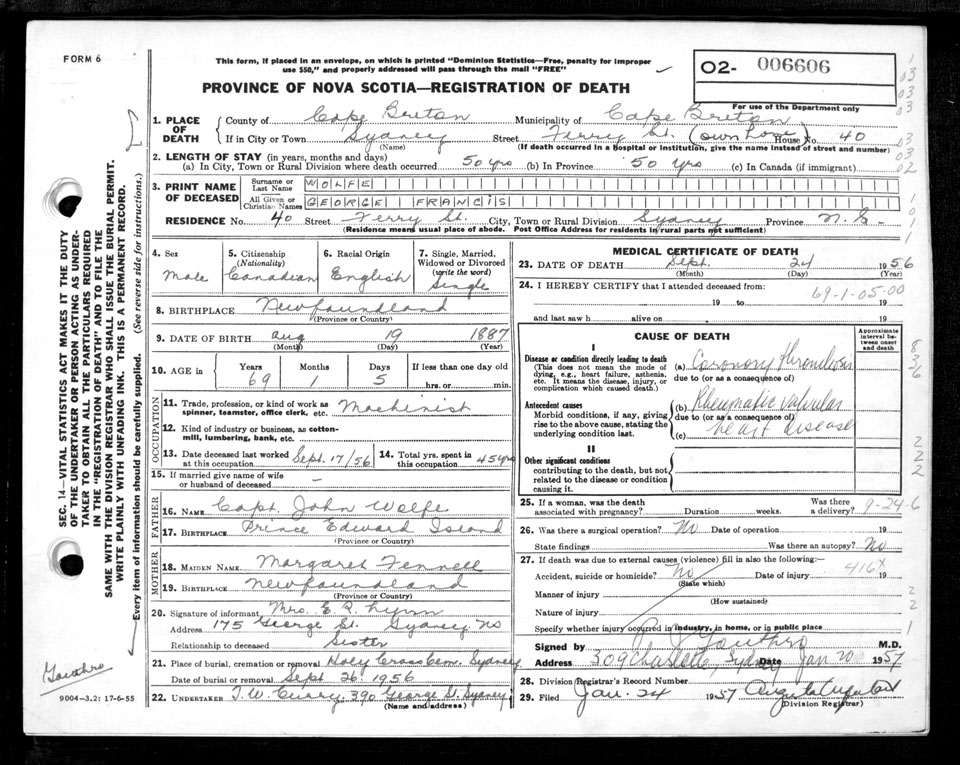 FORM 6
This form, if placed in an envelope, on which is printed "Dominion Statistics—Free, penalty for improper
use $50," and properly addressed will pass through the mail "FREE"
02- 006606
For use of the Department only
PROVINCE OF NOVA SCOTIA—REGISTRATION OF DEATH
1. PLACE OF DEATH
County of Cape Breton Municipality of Cape Breton
If in City or Town Sydney Street Ferry St. (own home) House No. 40
(Name) (If death occurred in a Hospital or Institution, give the name instead of street and number)
2. LENGTH OF STAY (in years, months and days)
(a) In City, Town or Rural Division where death occurred 50 yrs (b) In Province 50 yrs (c) In Canada (if immigrant)
3. PRINT NAME OF DECEASED
Surname or Last Name WOLFE
All Given or Christian Names GEORGE FRANCIS
RESIDENCE No. 40 Street Ferry St. City, Town or Rural Division Sydney Province N.S.
(Residence means usual place of abode. Post Office Address for residents in rural parts not sufficient)
4. Sex Male
5. Citizenship (Nationality) Canadian
6. Racial Origin English
7. Single, Married, Widowed or Divorced (write the word) Single
8. BIRTHPLACE Newfoundland
(Province or Country)
9. DATE OF BIRTH Aug 19 1887
(Month) (Day) (Year)
10. AGE in Years 69 Months 1 Days 5 If less than one day old hrs. or min.
OCCUPATION
11. Trade, profession, or kind of work as spinner, teamster, office clerk, etc. Machinist
12. Kind of industry or business, as cotton-mill, lumbering, bank, etc.
13. Date deceased last worked at this occupation Sept. 17/56
14. Total yrs. spent in this occupation 45 yrs
15. If married give name of wife or husband of deceased –
FATHER
16. NAME Capt. John Wolfe
17. BIRTHPLACE Prince Edward Island
(Province or Country)
MOTHER
18. MAIDEN NAME Margaret Fennell
19. BIRTHPLACE Newfoundland
(Province or Country)
20. Signature of informant Mrs. E. R. Lynn
Address 175 George St. Sydney NS
Relationship to deceased Sister
21. Place of burial, cremation or removal Holy Cross Cem. Sydney
Date of burial or removal Sept 26 1956
22. UNDERTAKER T.W. Curry, 390 George St. Sydney
(Name and address)
MEDICAL CERTIFICATE OF DEATH
23. DATE OF DEATH Sept. 24 1956
(Month) (Day) (Year)
24. I HEREBY CERTIFY that I attended deceased from:
69-1-05-00
19 to 19
and last saw h alive on 19
CAUSE OF DEATH
Approximate interval between onset and death
I
Disease or condition directly leading to death
(This does not mean the mode of dying, e.g., heart failure, asthenia, etc. It means the disease, injury, or complication which caused death.)
(a) Coronary thrombosis
due to (or as a consequence of)
Antecedent causes
Morbid conditions, if any, giving rise to the above cause, stating the underlying condition last.
(b) Rheumatic valvular
due to (or as a consequence of)
(c) heart disease
II
Other significant conditions
contributing to the death, but not related to the disease or condition causing it.
25. If a woman, was the death associated with pregnancy? Duration weeks. Was there a delivery?
9-24-6
26. Was there a surgical operation? No Date of operation 19
State findings Was there an autopsy? No
27. If death was due to external causes (violence) fill in also the following:
Accident, suicide or homicide? No Date of injury 19
(State which)
416x
Manner of injury
(How sustained)
Nature of injury
Specify whether injury occurred in industry, in home, or in public place
Signed by Gouthro M.D.
Address 309 Charlotte, Sydney Date Jan 20 1957
28. Division Registrar's Record Number
29. Filed Jan. 24 1957
(Division Registrar)
SEC. 14—VITAL STATISTICS ACT MAKES IT THE DUTY
OF THE UNDERTAKER OR PERSON ACTING AS UNDER-
TAKER TO OBTAIN ALL THE PARTICULARS REQUIRED
IN THE "REGISTRATION OF DEATH" AND TO FILE THE
SAME WITH THE DIVISION REGISTRAR WHO SHALL ISSUE THE BURIAL PERMIT.
WRITE PLAINLY WITH UNFADING INK. THIS IS A PERMANENT RECORD.
Every item of information should be carefully supplied. (See reverse side for instructions.)
Gouthro
9004-3.2: 17-6-55